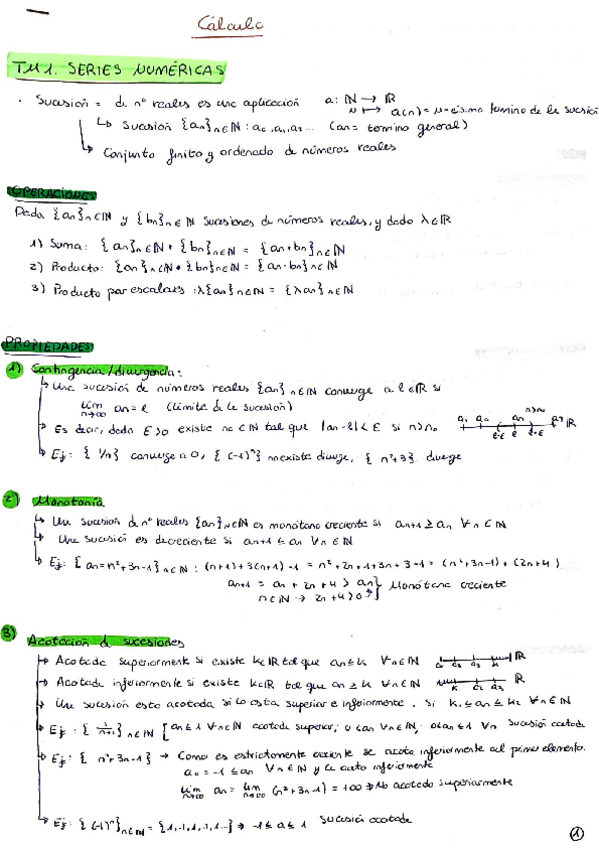 Cálculo
TM 1. SERIES NUMÉRICAS
· Sucesión = de nº reales es una aplicación a: ℕ → ℝ
n ↦ a(n) = n-ésimo termino de la sucesión
↳ Sucesión {an}n∈ℕ : a0, a1, a2... (an = termino general)
↳ Conjunto finito y ordenado de números reales
OPERACIONES
Dada {an}n∈ℕ y {bn}n∈ℕ sucesiones de números reales, y dado λ∈ℝ
1) Suma: {an}n∈ℕ + {bn}n∈ℕ = {an+bn}n∈ℕ
2) Producto: {an}n∈ℕ • {bn}n∈ℕ = {an·bn}n∈ℕ
3) Producto por escalares: λ{an}n∈ℕ = {λan}n∈ℕ
PROPIEDADES
1) Contingencia/divergencia:
↳ Una sucesión de números reales {an}n∈ℕ converge a l∈ℝ si
lim n→∞ an = l (límite de la sucesión)
↳ Es decir, dado ε>0 existe n0∈ℕ tal que |an-l|<ε si n>n0
↳ Ej: {1/n} converge a 0, {(-1)ⁿ} no existe diverge, {n²+3} diverge
2) Monotonía
↳ Una sucesión de nº reales {an}n∈ℕ es monótona creciente si an+1 ≥ an ∀n∈ℕ
↳ Una sucesión es decreciente si an+1 ≤ an ∀n∈ℕ
↳ Ej: {an=n²+3n-1}n∈ℕ : (n+1)+3(n+1)-1 = n²+2n+1+3n+3-1 = (n²+3n-1)+(2n+4)
an+1 = an + 2n+4 > an } Monótona creciente
n∈ℕ → 2n+4>0
3) Acotación de sucesiones
→ Acotada superiormente si existe k∈ℝ tal que an≤k ∀n∈ℕ
→ Acotada inferiormente si existe k∈ℝ tal que an≥k ∀n∈ℕ
→ Una sucesión esta acotada si lo esta superior e inferiormente. Si k1≤an≤k2 ∀n∈ℕ
→ Ej: {1/n+1}n∈ℕ [an≤1 ∀n∈ℕ acotada superior; 0<an ∀n∈ℕ; 0<an≤1 ∀n Sucesión acotada
→ Ej: {n²+3n-1} → Como es estrictamente creciente se acota inferiormente al primer elemento.
a0 = -1 ≤ an ∀n∈ℕ y la cota inferiormente
lim n→∞ an = lim n→∞ (n²+3n-1) = +∞ → No acotado superiormente
→ Ej: {(-1)ⁿ}n∈ℕ = {1,-1,1,-1,1...} → -1≤a≤1 Sucesión acotada
1